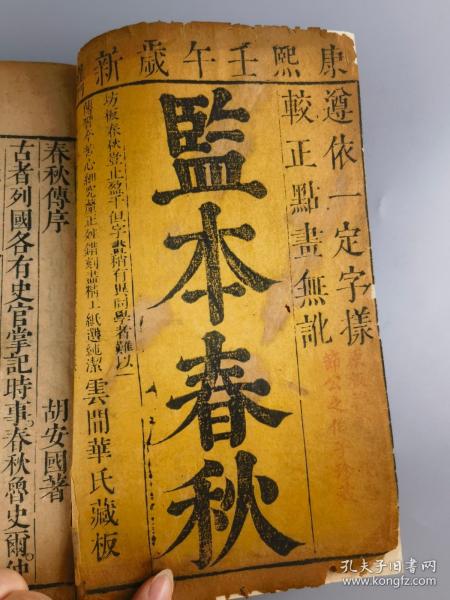 康熙壬午歲新
遵依一定字樣
較正點畫無訛
監本春秋
坊板春秋豈止盈千但字畫稍有異同學者難以
傳習今苦心細究釐正舛錯刻畫精工紙選純潔
雲間華氏藏板
春秋傳序 胡安國著
古者列國各有史官掌記時事。春秋魯史爾。仲
孔夫子旧书网